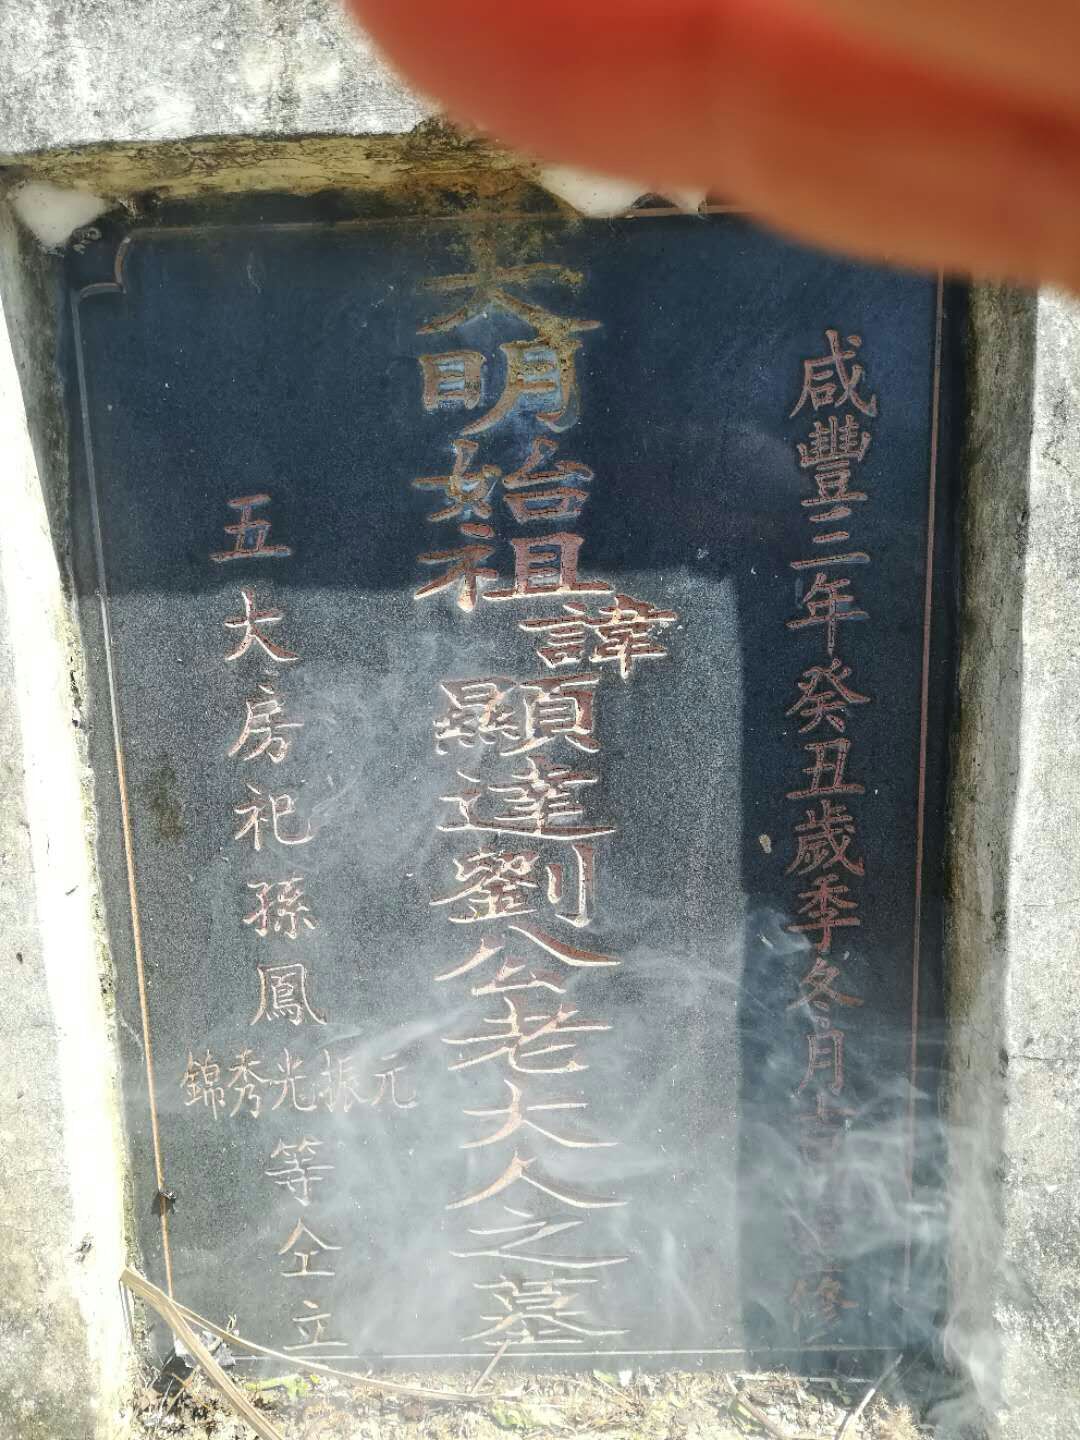 咸豐三年癸丑歲季冬月吉修
大明始祖諱顯達劉公老大人之墓
五大房祀孫鳳元振光秀錦等仝立